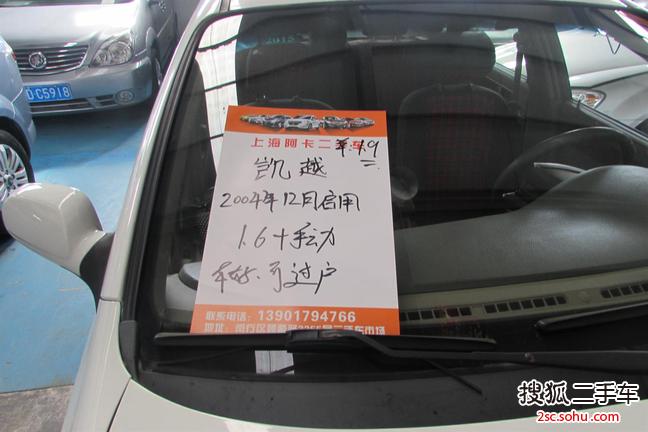 C5918
上海阿卡二手车
凯越
2004年12月启用
1.6+手动
车好.可过户
联系电话：13901794766
搜狐二手车
2sc.sohu.com